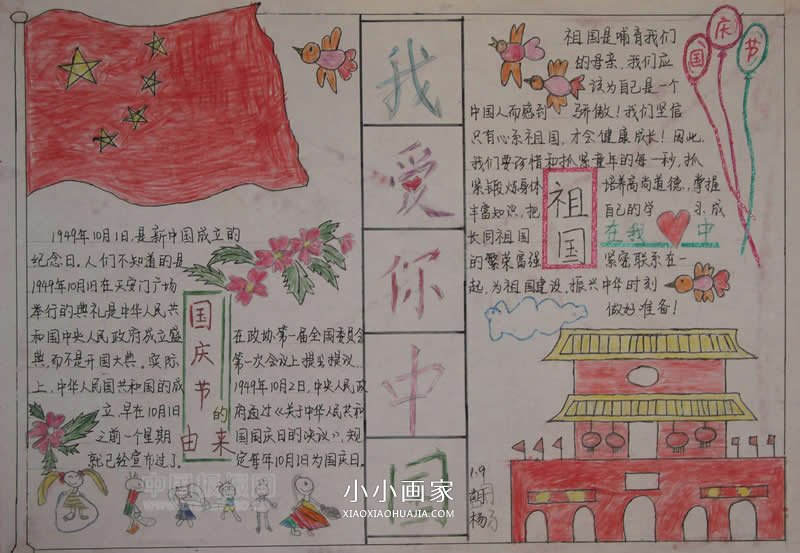 我
爱
你
中
国
1949年10月1日,是新中国成立的
纪念日。人们不知道的是
1949年10月1日在天安门广场
举行的典礼是中华人民共
和国中央人民政府成立盛
典,而不是开国大典。实际
上,中华人民国共和国的成
立,早在10月1日
之前一个星期
就已经宣布过了。
国庆节的由来
在政协第一届全国委员会
第一次会议上提出提议
1949年10月2日,中央人民政
府通过《关于中华人民共和
国国庆日的决议》,规
定每年10月1日为国庆日。
国庆节
祖国是哺育我们
的母亲,我们应
该为自己是一个
中国人而感到骄傲!我们坚信
只有心系祖国,才会健康成长!因此,
我们要珍惜和抓紧童年的每一秒,抓
紧锻炼身体 培养高尚道德,掌握
丰富知识,把 自己的学习、成
长同祖国
的繁荣富强 紧密联系在一
起,为祖国建设、振兴中华时刻
做好准备!
祖国
在我 中
1.9
胡
杨
小小画家
XIAOXIAOHUAJIA.COM